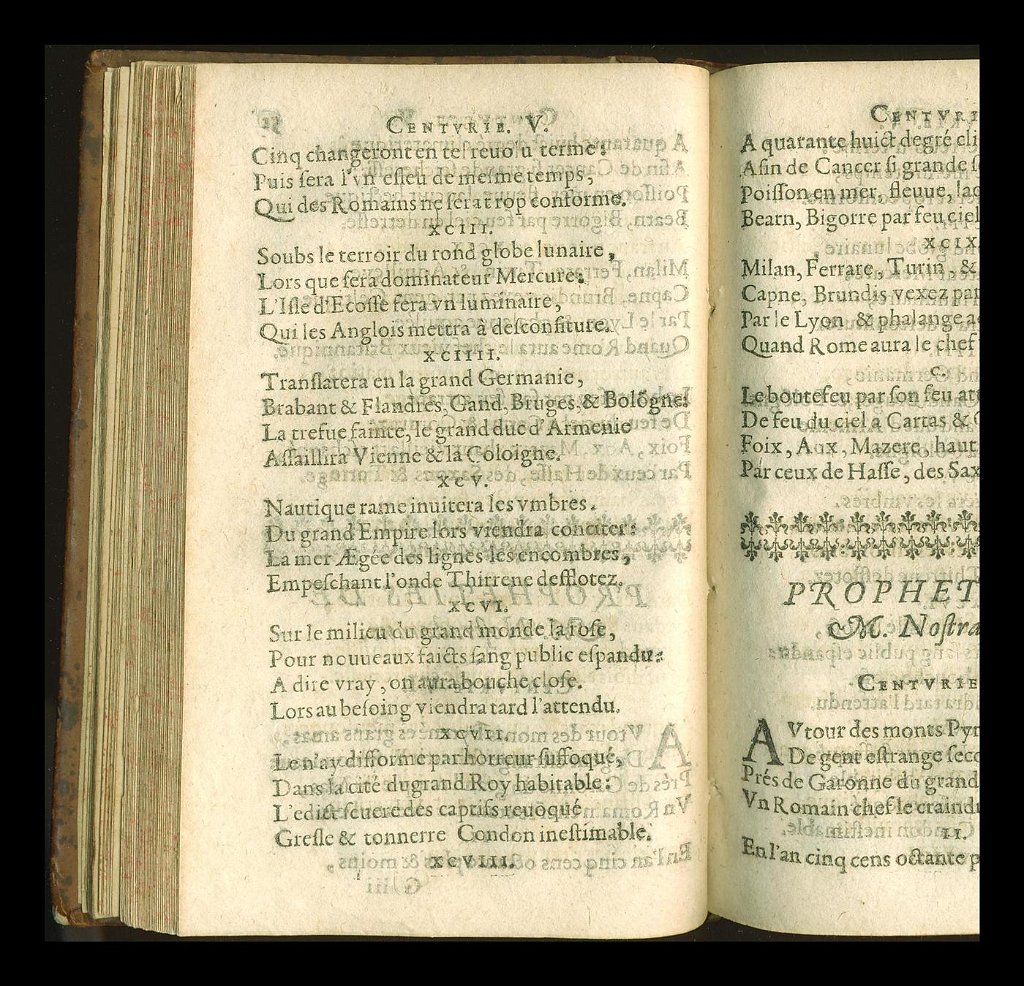 CENTVRIE. V.
Cinq changeront en tel reuolu terme:
Puis sera l'vn esleu de mesme temps,
Qui des Romains ne sera trop conforme.
XCIII.
Soubs le terroir du rond globe lunaire,
Lors que sera dominateur Mercure:
L'Isle d'Ecosse sera vn luminaire,
Qui les Anglois mettra à desconfiture.
XCIIII.
Translatera en la grand Germanie,
Brabant & Flandres, Gand, Bruges, & Bolõgne:
La trefue fainte, le grand duc d'Armenie
Assaillira Vienne & la Cologne.
XCV.
Nautique rame inuitera les vmbres.
Du grand Empire lors viendra conciter:
La mer Ægee des lignes les encombres,
Empeschant l'onde Thirrene defflotez.
XCVI.
Sur le milieu du grand monde la rose,
Pour nouueaux faicts sang public espandu:
A dire vray, on aura bouche close.
Lors au besoing viendra tard l'attendu.
XCVII.
Le n'ay difforme par horreur suffoqué,
Dans la cité du grand Roy habitable:
L'edict seuere des captifs reuoqué
Gresle & tonnerre Condon inestimable.
XCVIII.
CENTVRI
A quarante huict degré cli
A fin de Cancer si grande s
Poisson en mer, fleuue, lac
Bearn, Bigorre par feu ciel
XCIX
Milan, Ferrare, Turin, &
Capne, Brundis vexez par
Par le Lyon & phalange a
Quand Rome aura le chef
C.
Le boutefeu par son feu att
De feu du ciel a Cartas & C
Foix, Aux, Mazere, haut
Par ceux de Hasse, des Sax
PROPHET
M. Nostra
CENTVRIE
AVtour des monts Pyr
De gent estrange seco
Prés de Garonne du grand
Vn Romain chef le craindr
II.
En l'an cinq cens octante p